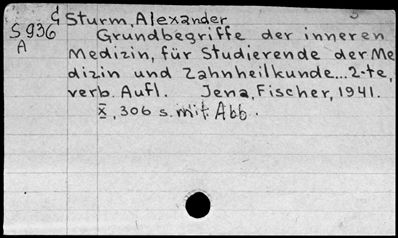 d Sturm, Alexander
S 936
A
Grundbegriffe der inneren
Medizin, für Studierende der Me
dizin und Zahnheilkunde...2-te,
verb. Aufl. Jena, Fischer, 1941.
X, 306 s. mit Abb.